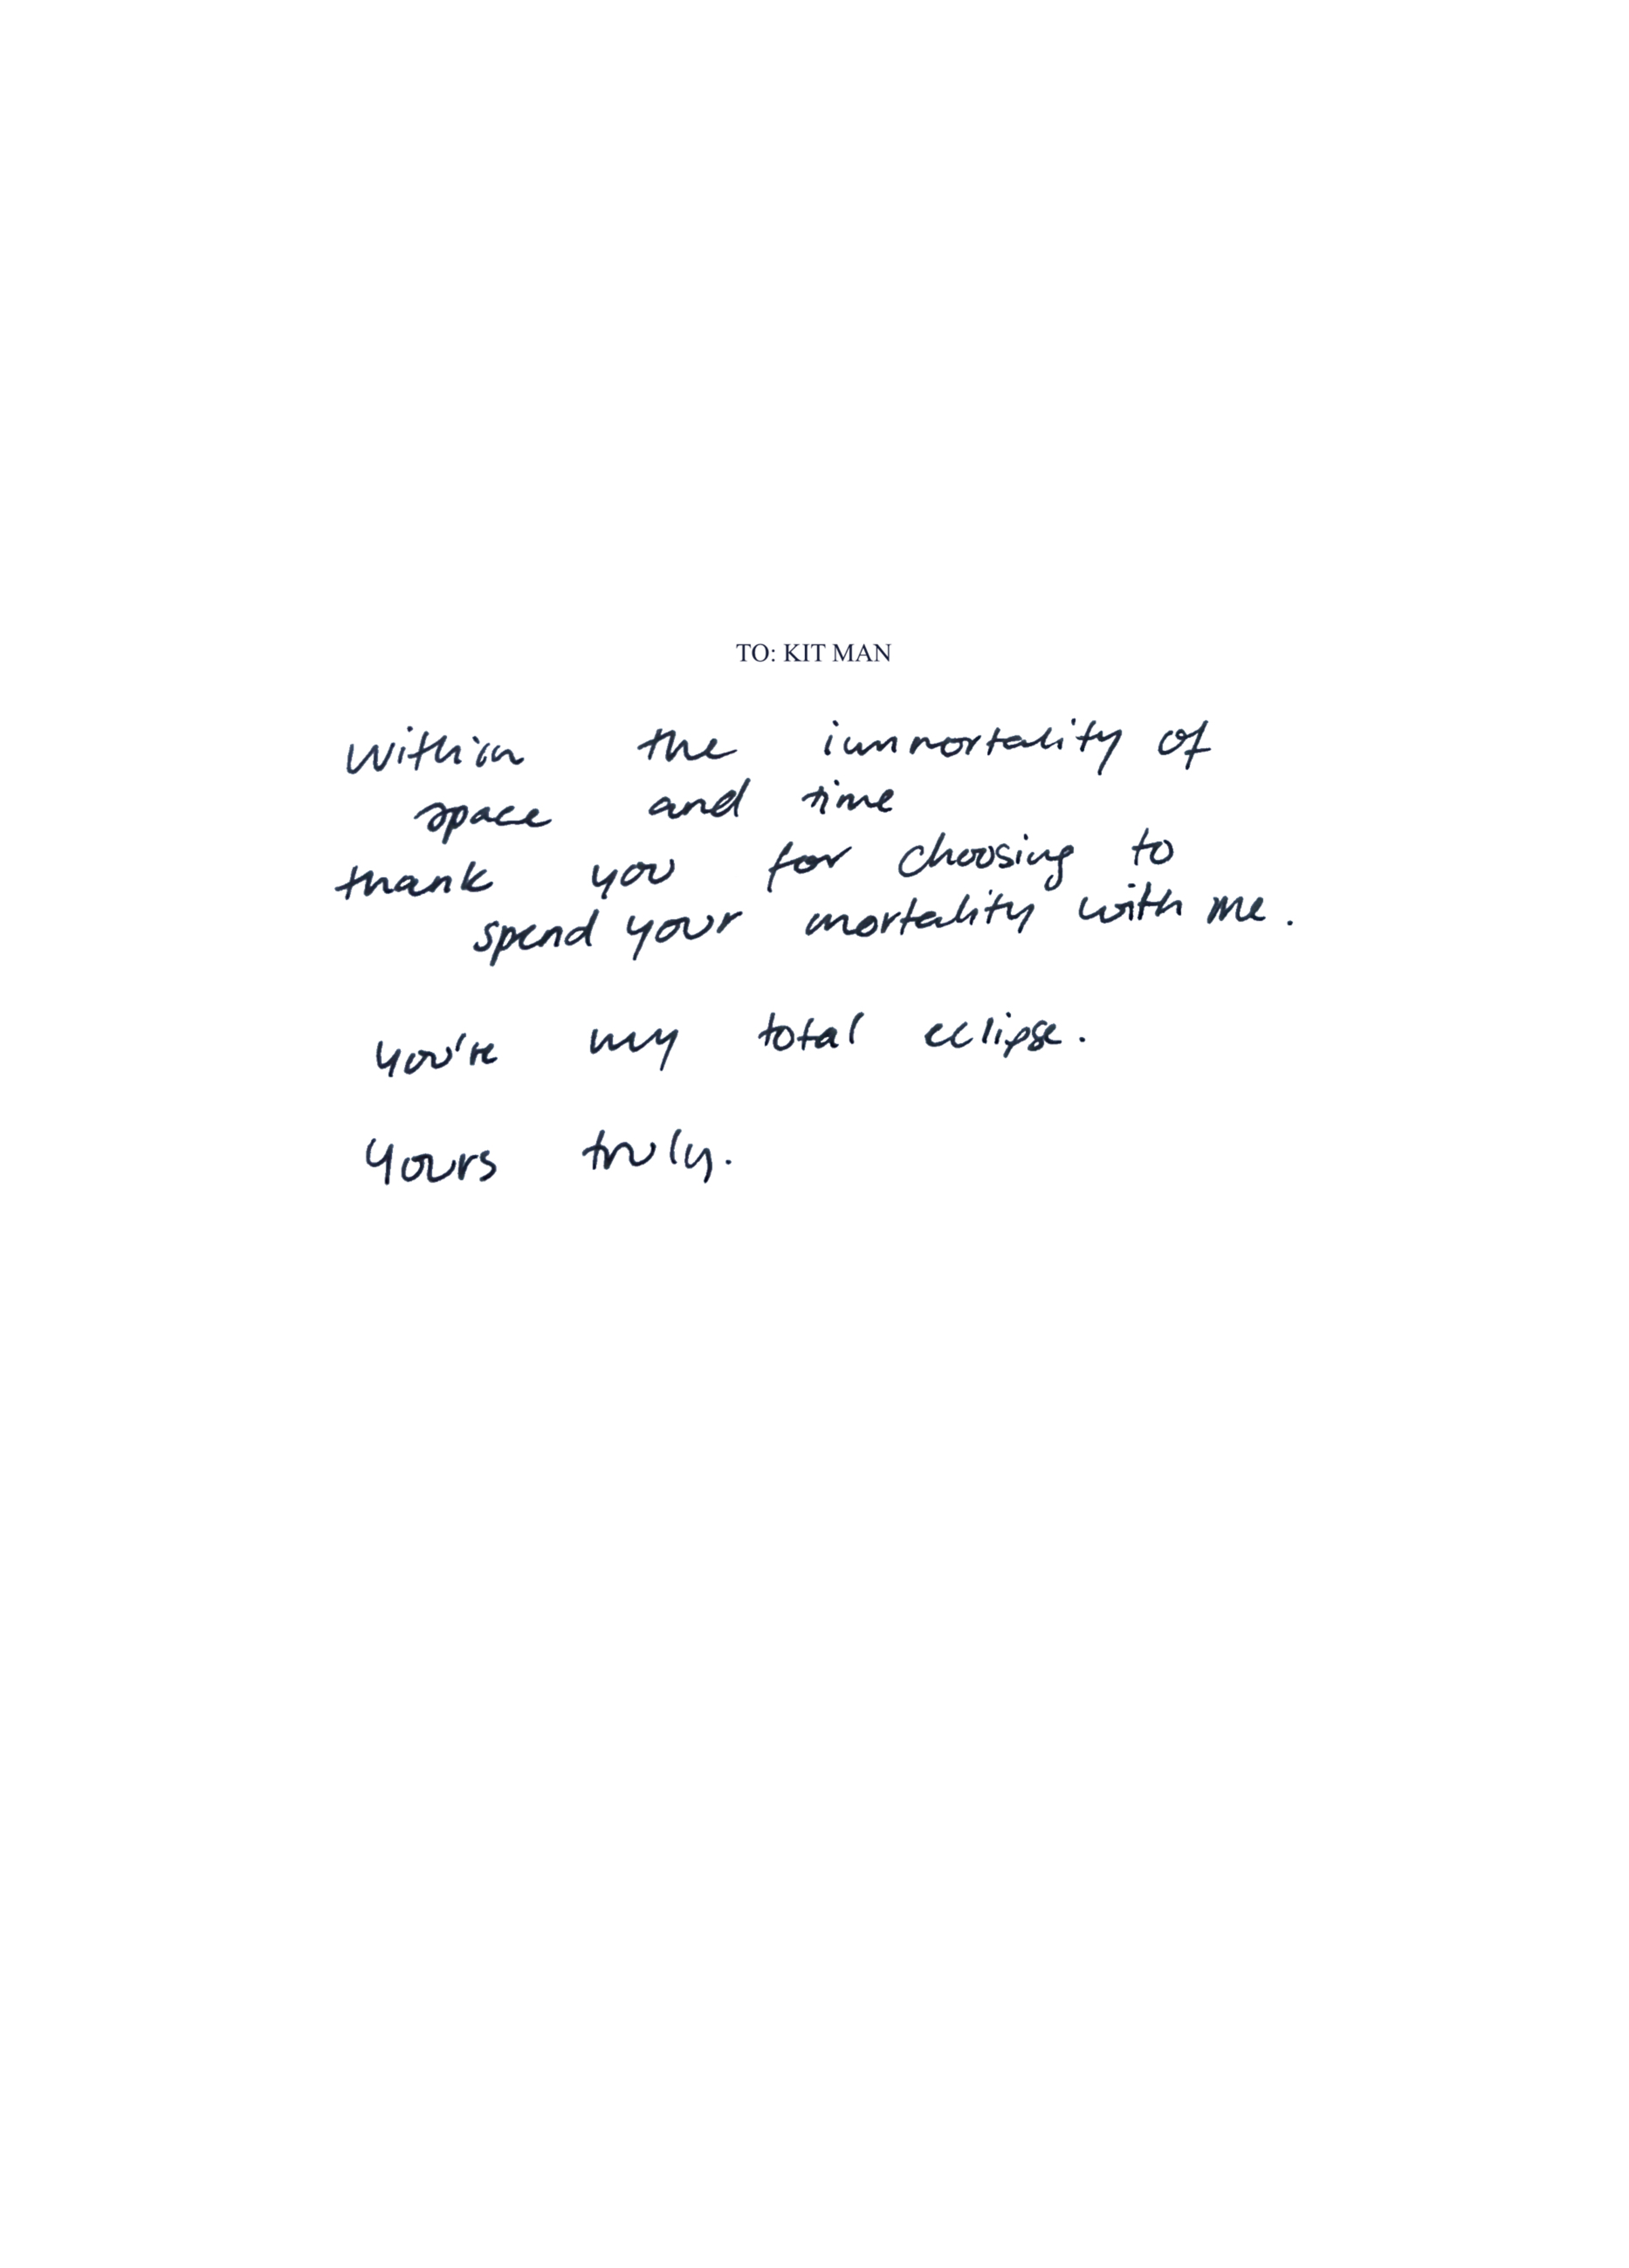 TO: KIT MAN
Within the immortality of
space and time
thank you for choosing to
spend your mortality with me.
you're my total eclipse.
Yours truly.